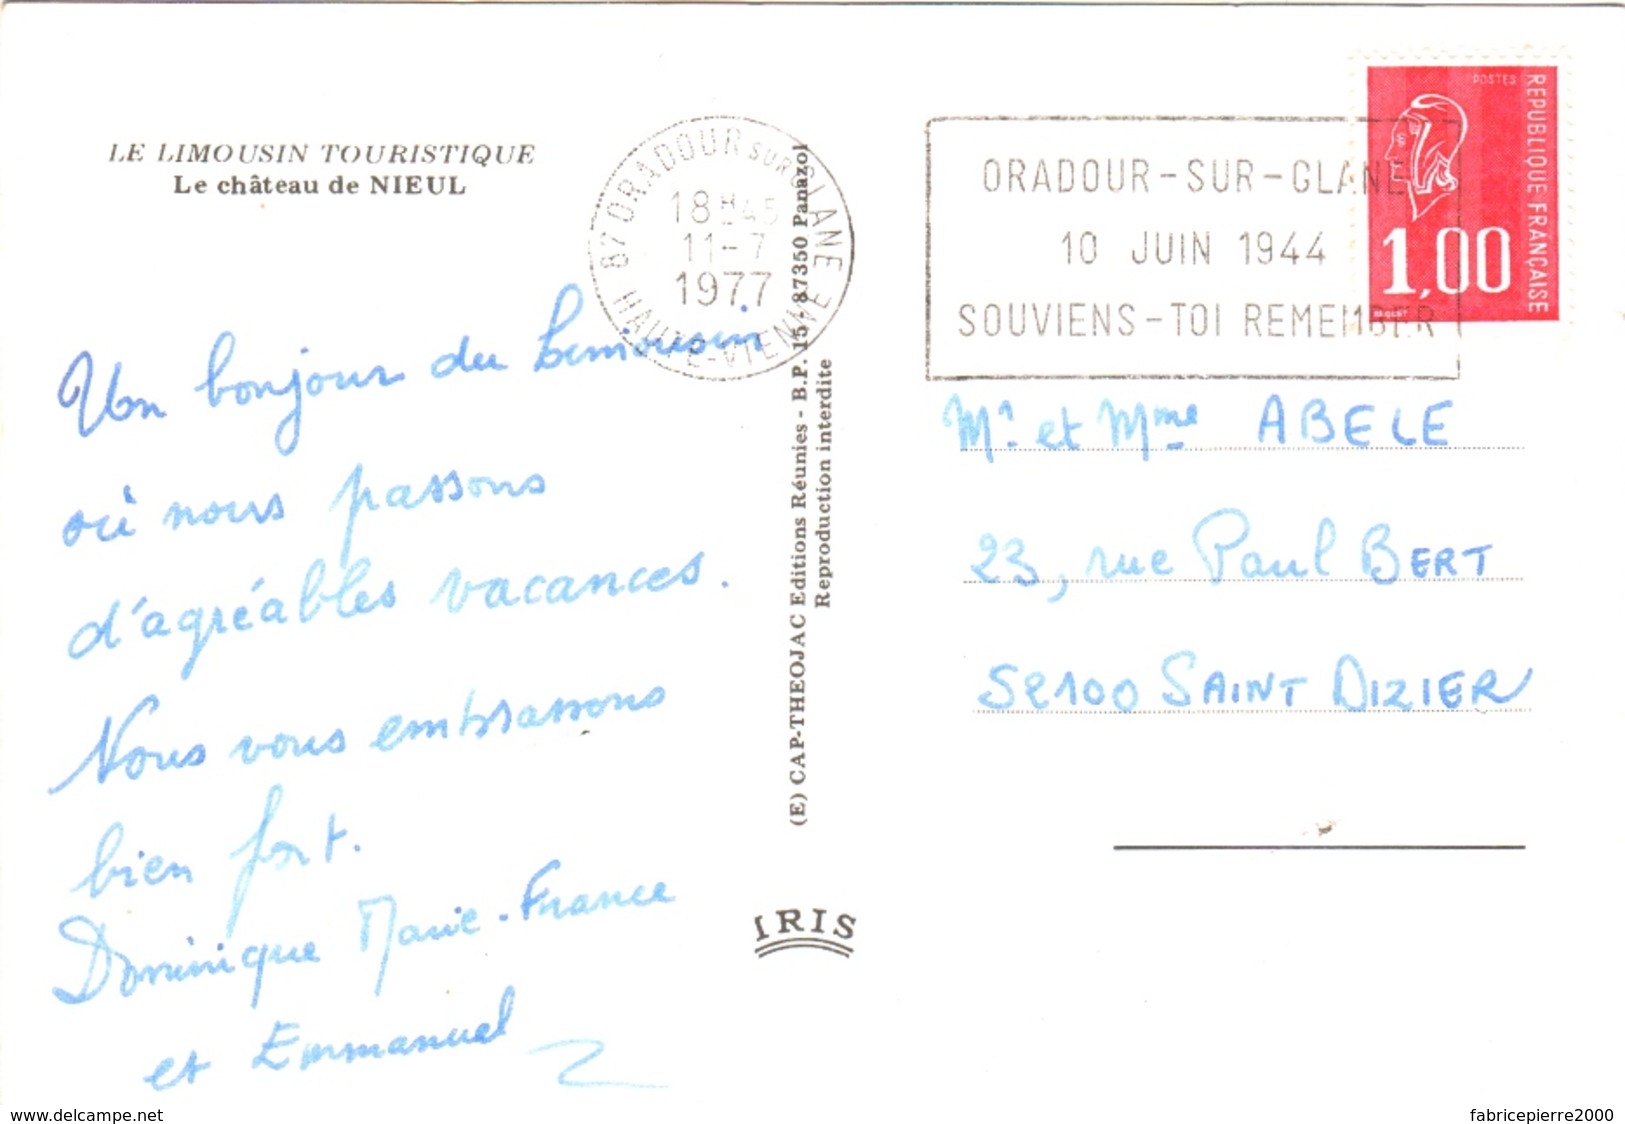 LE LIMOUSIN TOURISTIQUE
Le château de NIEUL
Un bonjour du Limousin
où nous passons
d'agréables vacances.
Nous vous embrassons
bien fort.
Dominique Marie-France
et Emmanuel
87 ORADOUR SUR GLANE
18H45
11-7
1977
HAUTE-VIENNE
(E) CAP-THEOJAC Editions Réunies - B.P. 15 - 87350 Panazol
Reproduction interdite
IRIS
ORADOUR-SUR-GLANE
10 JUIN 1944
SOUVIENS-TOI REMEMBER
POSTES
REPUBLIQUE FRANÇAISE
1,00
BEQUET
Mr et Mme ABELE
23, rue Paul BERT
52100 SAINT DIZIER
www.delcampe.net
fabricepierre2000